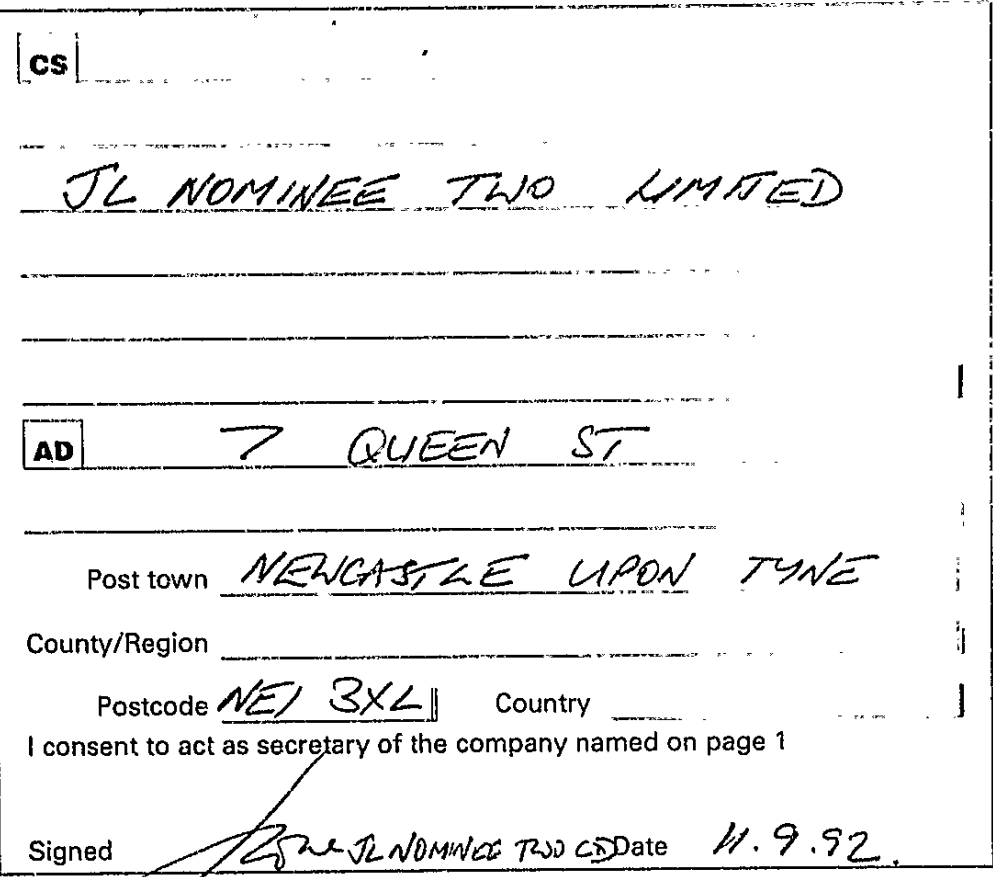 CS
JL NOMINEE TWO LIMITED
AD 7 QUEEN ST
Post town NEWCASTLE UPON TYNE
County/Region
Postcode NE1 3XL Country
I consent to act as secretary of the company named on page 1
Signed JL NOMINEE TWO LTD Date 11.9.92.